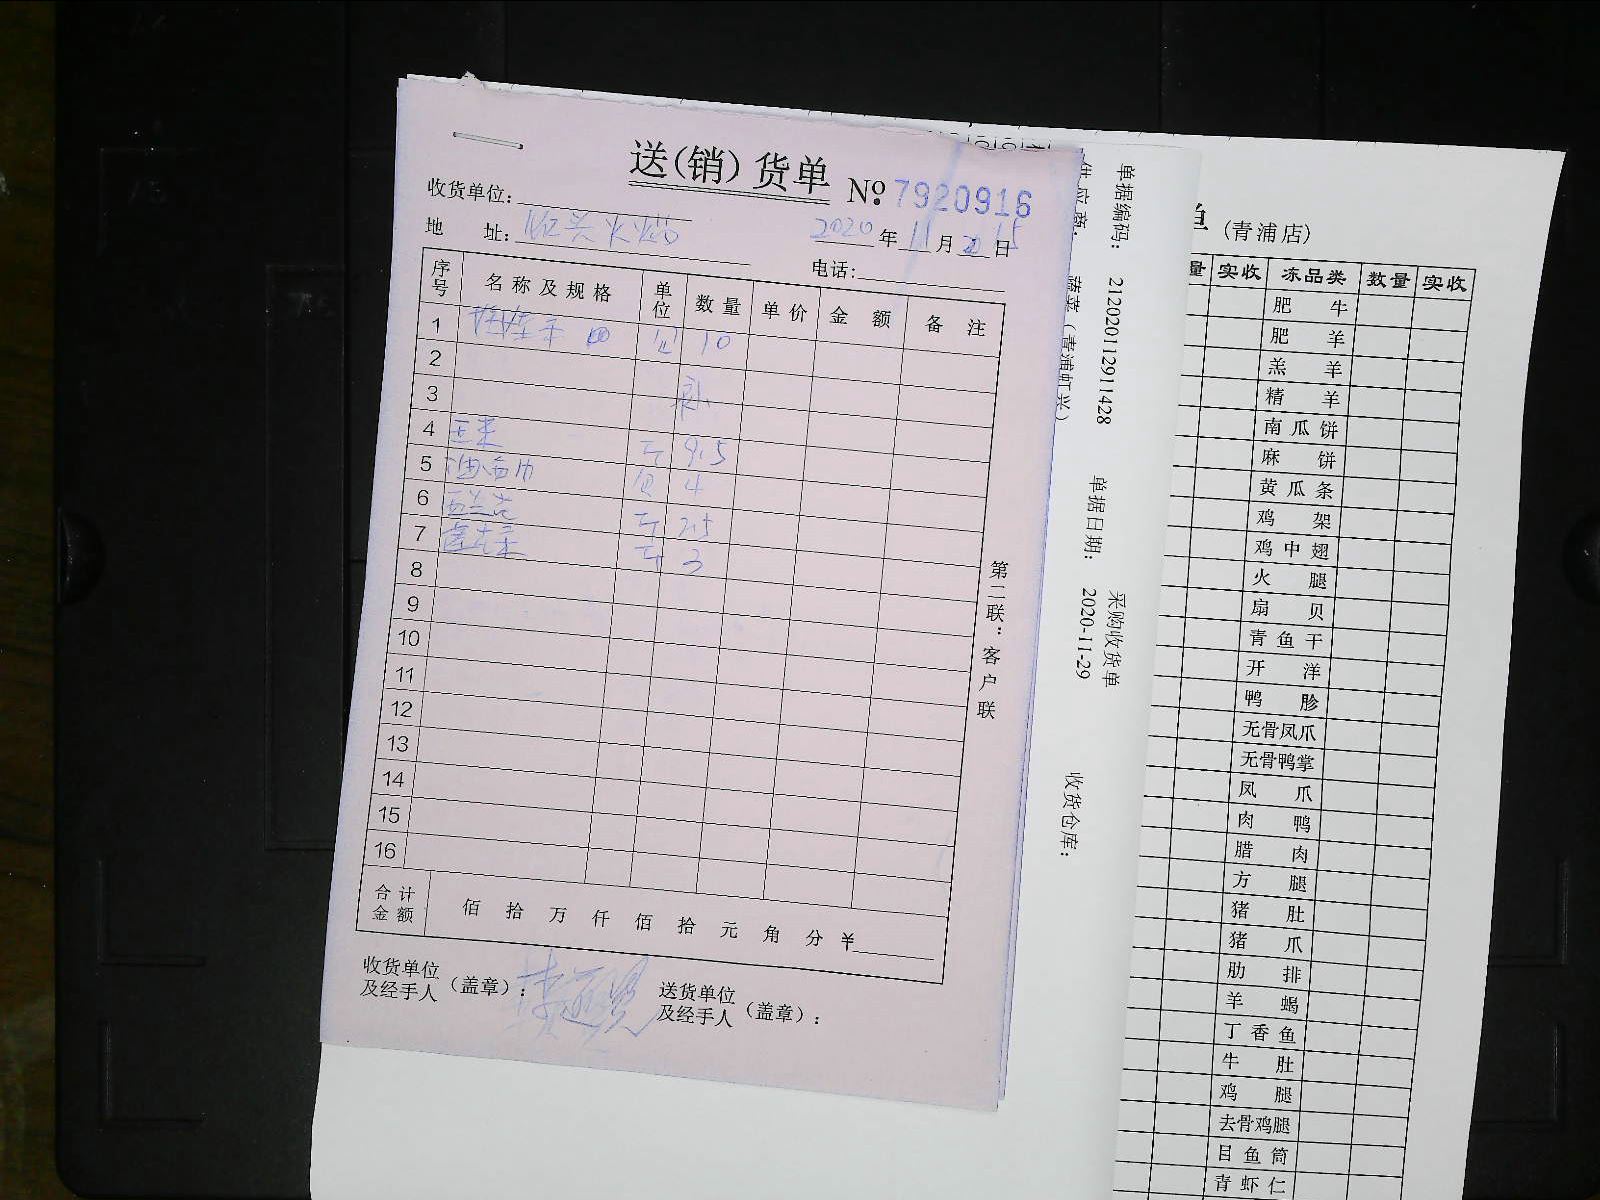 送(销)货单
No. 7920916
收货单位:
地 址: 虹兴火焰
2020年11月15日
电话:
序号 名称及规格 单位 数量 单价 金额 备注
1 包 10
2
3
4 玉米 斤 9.5
5 油面巾 包 4
6 西兰花 斤 7.5
7 斤 3
8
9
10
11
12
13
14
15
16
合计金额 佰 拾 万 仟 佰 拾 元 角 分 ¥
收货单位及经手人(盖章):
送货单位及经手人(盖章):
第二联:客户联
供应商: 蔬菜(青浦虹兴)
单据编码: 2120201129111428
单据日期: 2020-11-29
采购收货单
收货仓库:
单(青浦店)
量 实收 冻品类 数量 实收
肥牛
肥羊
羔羊
精羊
南瓜饼
麻饼
黄瓜条
鸡架
鸡中翅
火腿
扇贝
青鱼干
开洋
鸭胗
无骨凤爪
无骨鸭掌
凤爪
肉鸭
腊肉
方腿
猪肚
猪爪
肋排
羊蝎
丁香鱼
牛肚
鸡腿
去骨鸡腿
目鱼筒
青虾仁